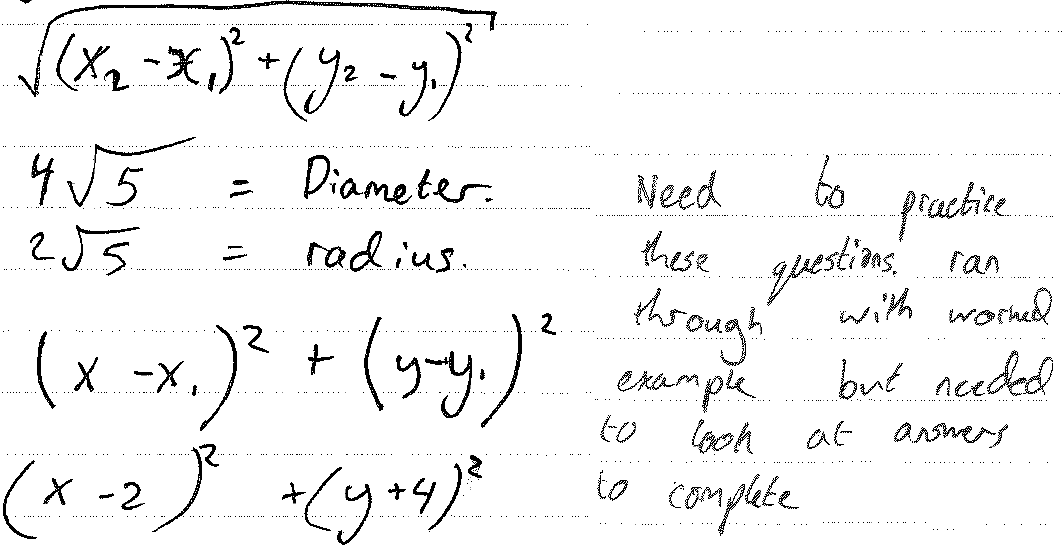 √(x₂ - x₁)² + (y₂ - y₁)²
4√5 = Diameter.
2√5 = radius.
(x - x₁)² + (y - y₁)²
(x - 2)² + (y + 4)²
Need to practice
these questions. ran
through with worked
example but needed
to look at answers
to complete